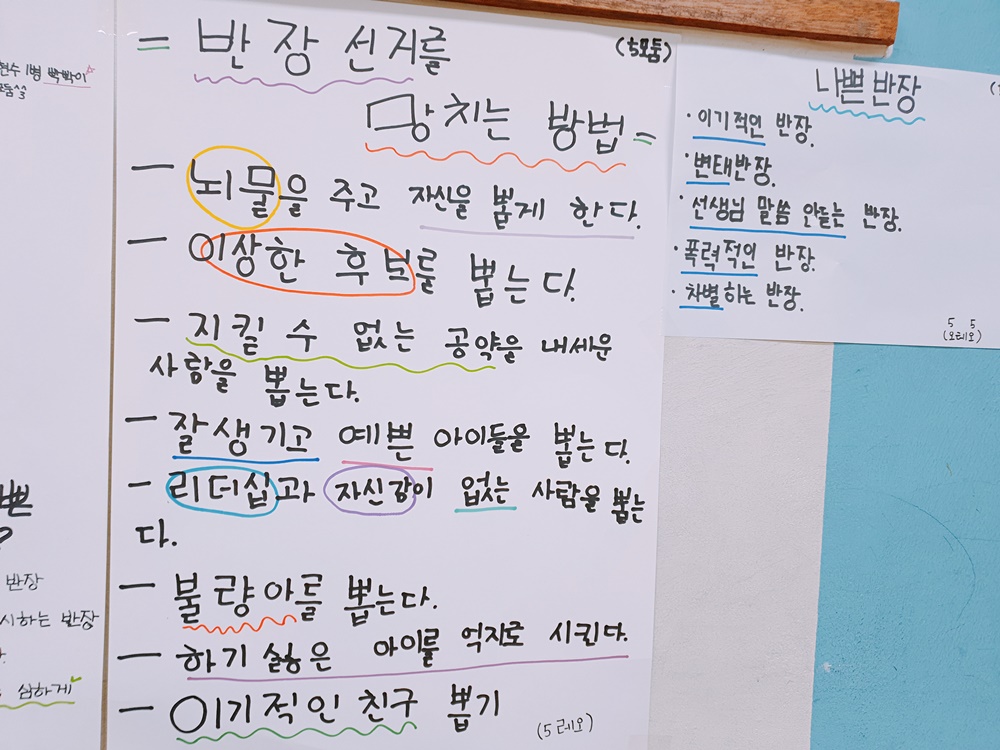 = 반장 선거를
(5모둠)
망치는 방법 =
- 뇌물을 주고 자신을 뽑게 한다.
- 이상한 후보를 뽑는다.
- 지킬 수 없는 공약을 내세운
사람을 뽑는다.
- 잘생기고 예쁜 아이들을 뽑는다.
- 리더십과 자신감이 없는 사람을 뽑는
다.
- 불량아들 뽑는다.
- 하기 싫은 아이를 억지로 시킨다.
- 이기적인 친구 뽑기
(5레오)
나쁜 반장
· 이기적인 반장.
· 변태반장.
· 선생님 말씀 안듣는 반장.
· 폭력적인 반장.
· 차별하는 반장.
5 5
(오레오)
현수 1병 빡빡이
반장
시하는 반장
심하게